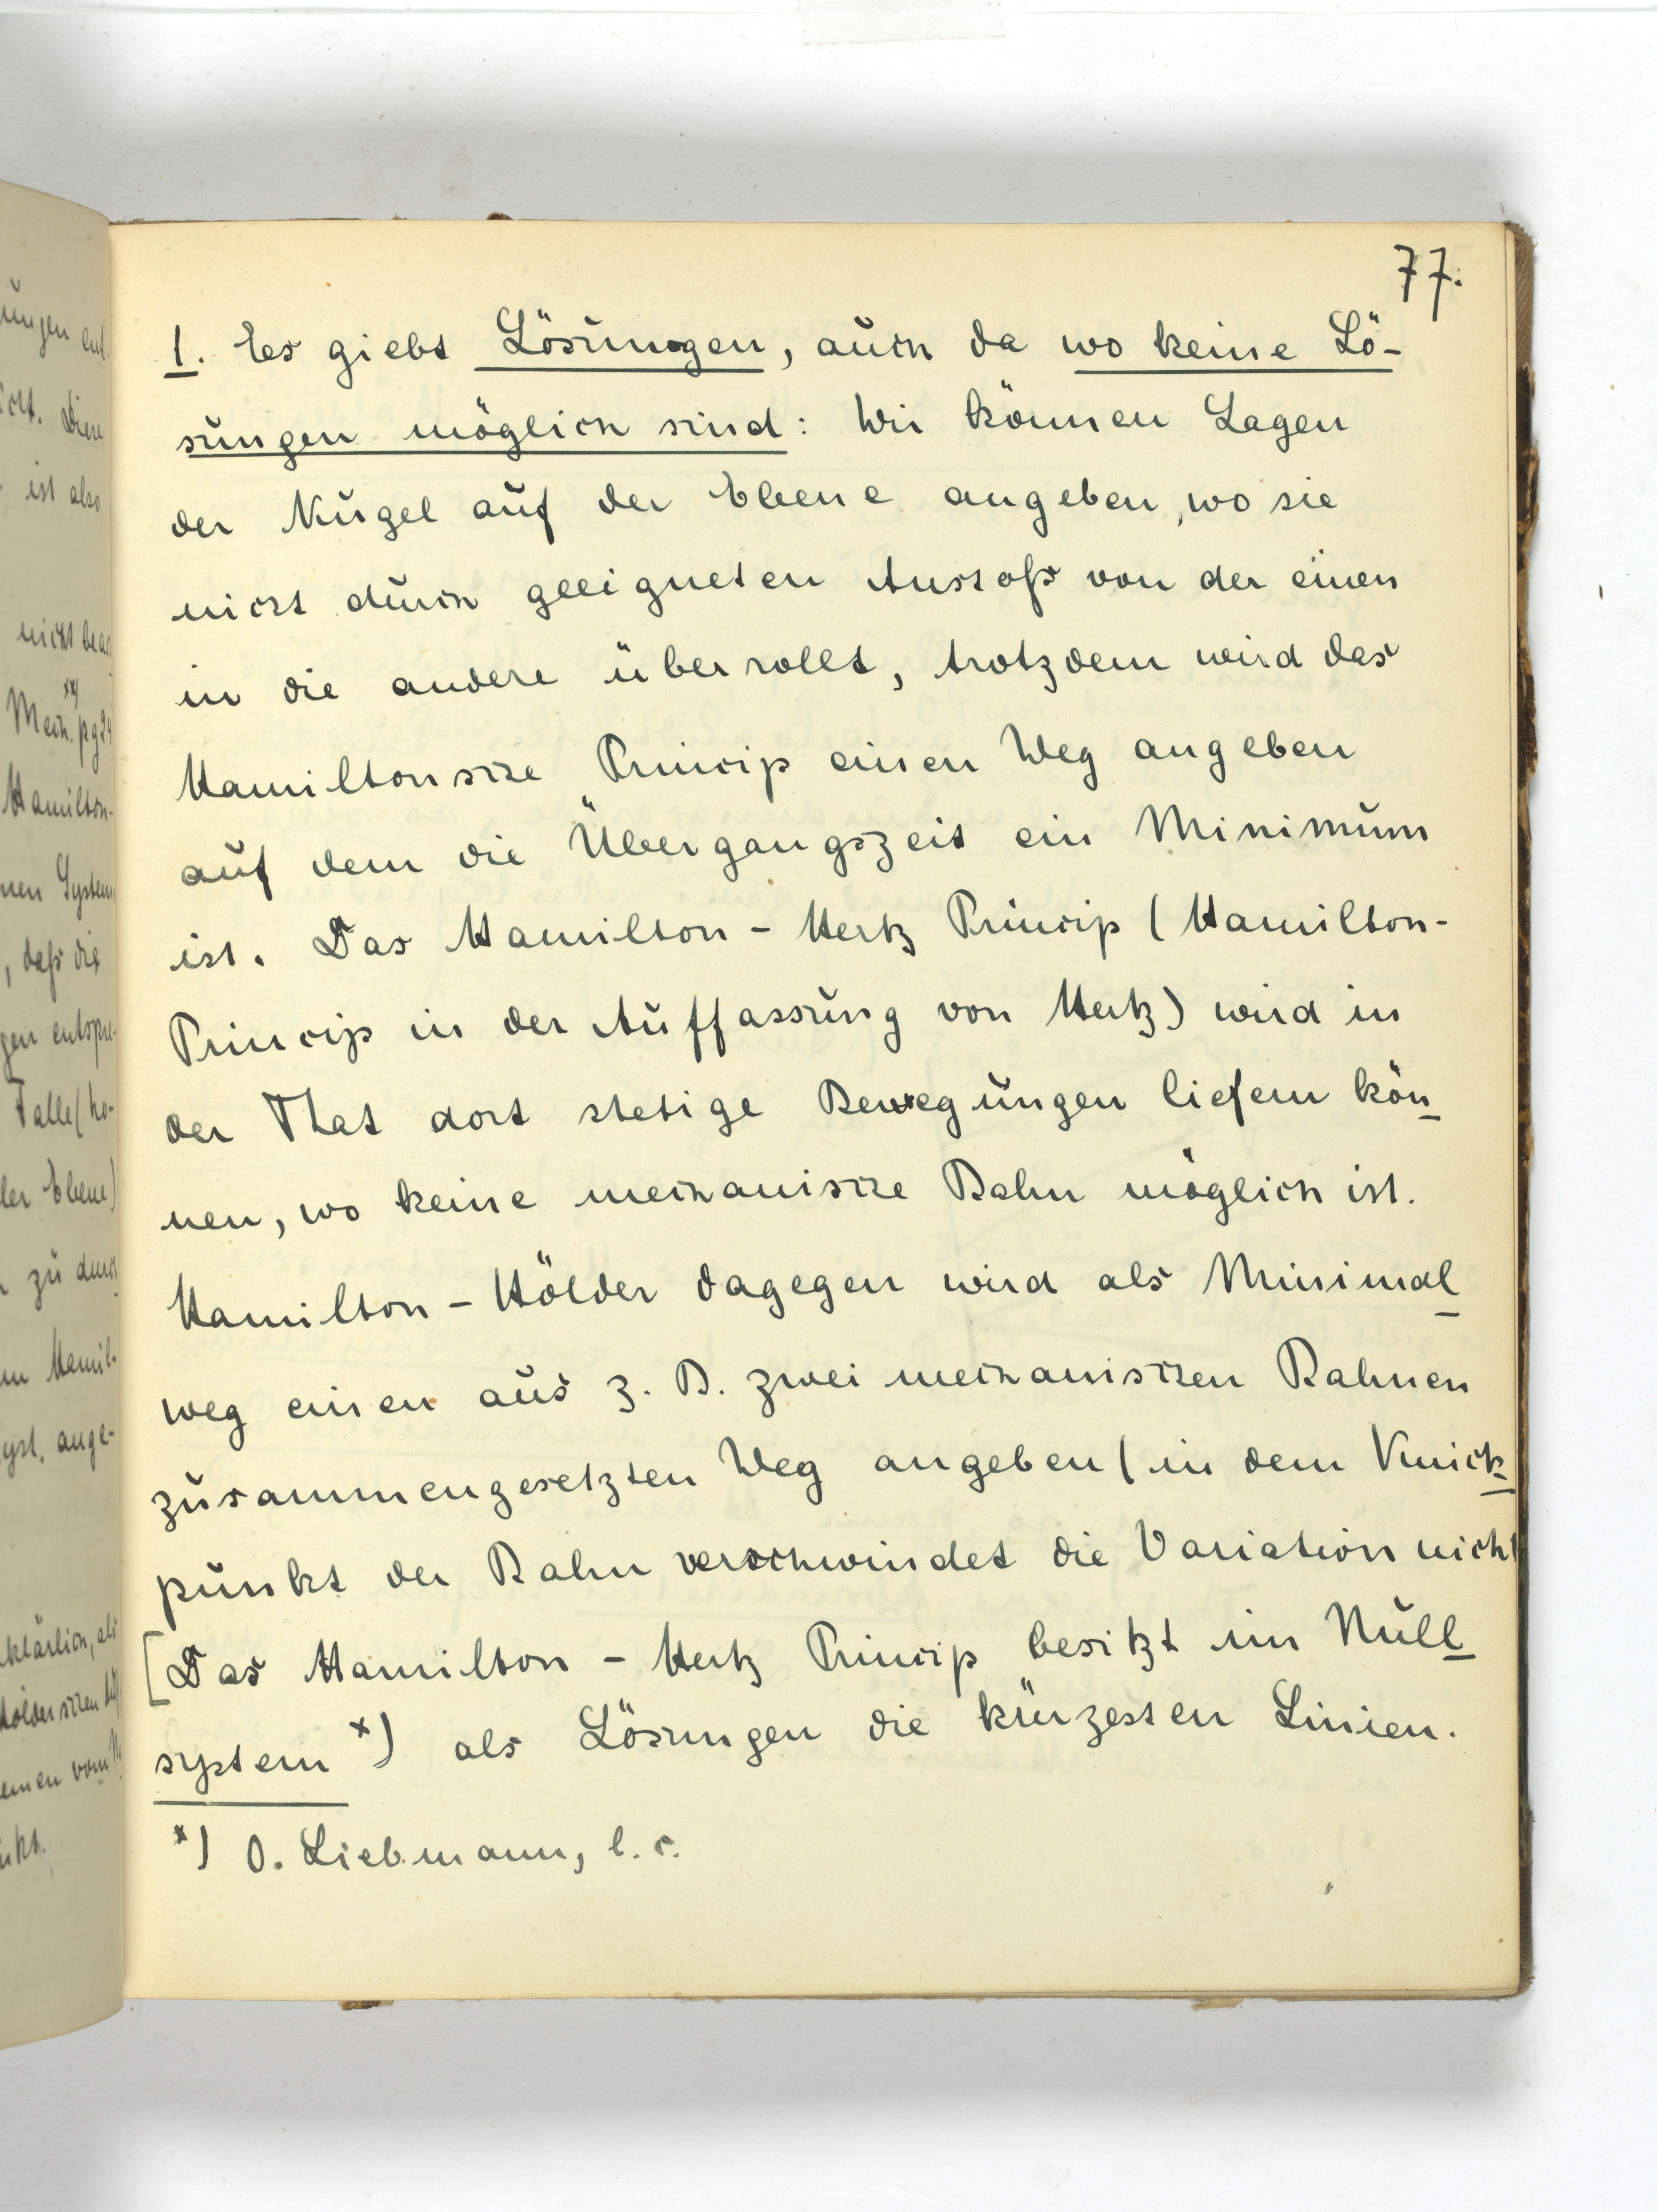 77.
1. Es giebt Lösungen, auch da wo keine Lö-
sungen möglich sind: Wir können Lagen
der Kugel auf der Ebene angeben, wo sie
nicht durch geeigneten Anstoß von der einen
in die andere überrollt, trotzdem wird das
Hamiltonsche Princip einen Weg angeben
auf dem die Übergangszeit ein Minimum
ist. Das Hamilton - Hertz Princip (Hamilton-
Princip in der Auffassung von Hertz) wird in
der That dort stetige Bewegungen liefern kön_
nen, wo keine mechanische Bahn möglich ist.
Hamilton - Hölder dagegen wird als Minimal_
weg einen aus z. B. zwei mechanischen Bahnen
zusammengesetzten Weg angeben (in dem Knick_
punkt der Bahn verschwindet die Variation nicht
[Das Hamilton - Hertz Princip besitzt im Null_
system *) als Lösungen die kürzesten Linien.
*) O. Liebmann, l. c.
ist also
Hamilton-
, daß die